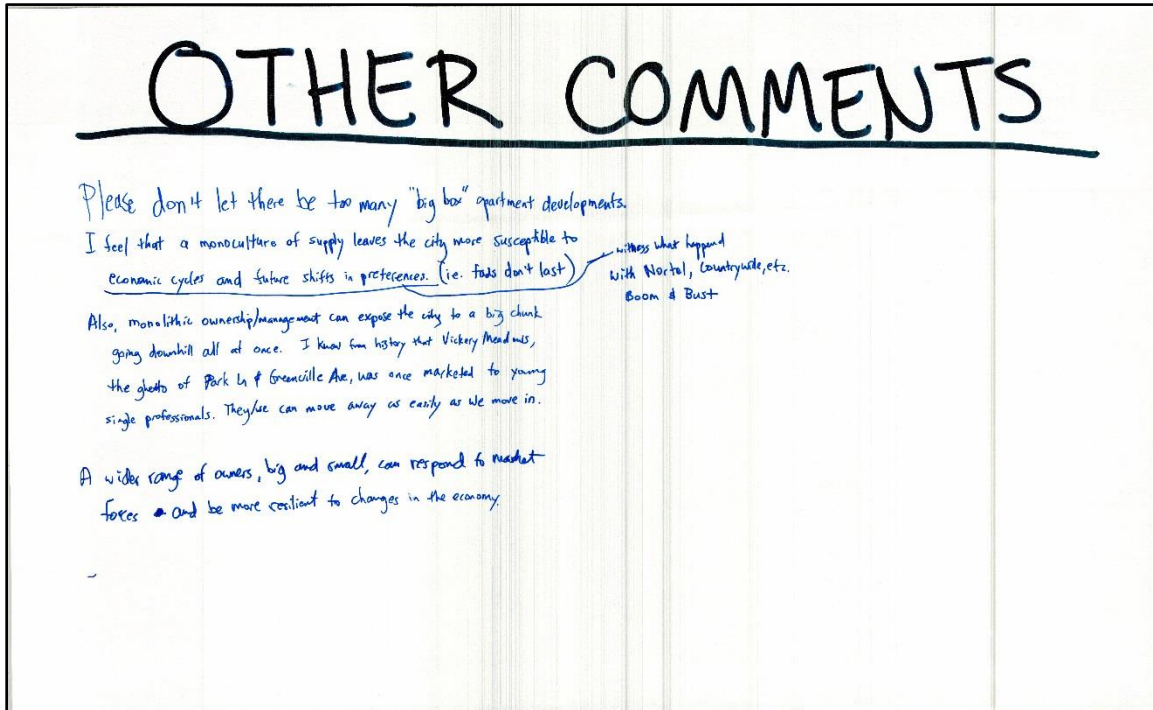 OTHER COMMENTS
Please don't let there be too many "big box" apartment developments.
I feel that a monoculture of supply leaves the city more susceptible to
economic cycles and future shifts in preferences. (i.e. fads don't last)
witness what happend
with Nortel, Countrywide, etc.
Boom & Bust
Also, monolithic ownership/management can expose the city to a big chunk
going downhill all at once. I know from history that Vickery Meadows,
the ghetto of Park Ln & Greenville Ave, was once marketed to young
single professionals. They/we can move away as easily as we move in.
A wider range of owners, big and small, can respond to market
forces and be more resilient to changes in the economy.